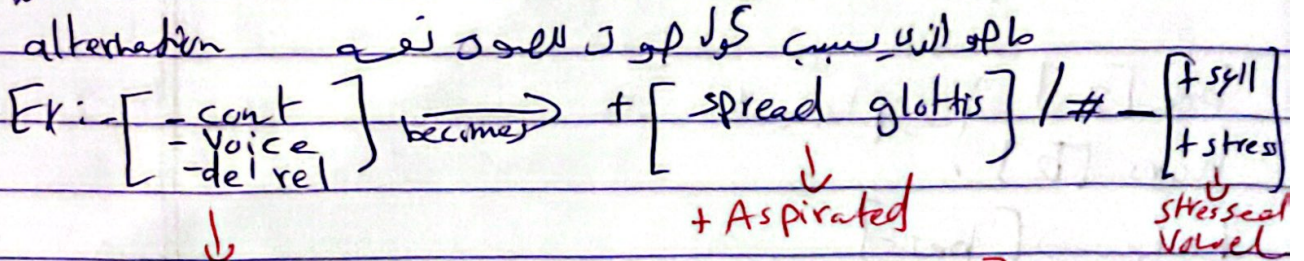 alternation ما هو الذي يسبب كون صوت للصوت نفسه
Ex:- [ - cont - Voice -del rel ] becomes ⟹ + [ spread glottis ] / # — [ + syll + stress ]
↓ ↓ + Aspirated ↓ stressed Vowel